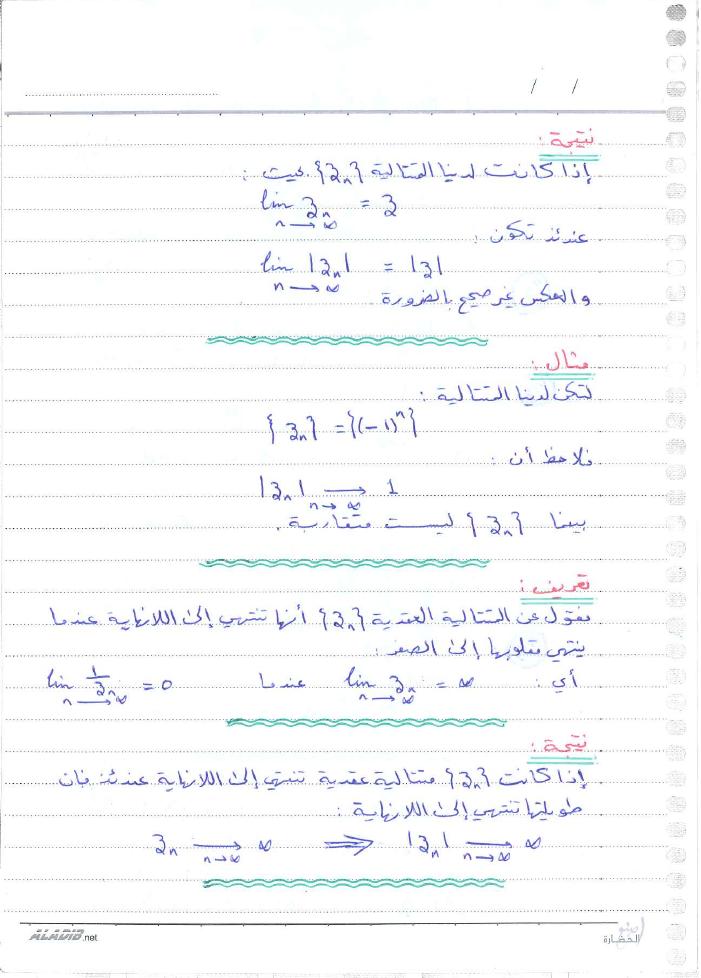 / /
نتيجة :
إذا كانت لدينا المتتالية {z_n} بحيث :
lim_{n→∞} z_n = z
عندئذ تكون :
lim_{n→∞} |z_n| = |z|
والعكس غير صحيح بالضرورة
مثال :
لتكن لدينا المتتالية :
{z_n} = {(-1)^n}
نلاحظ أن :
|z_n| →_{n→∞} 1
بينما {z_n} ليست متقاربة .
تعريف :
نقول عن المتتالية العقدية {z_n} أنها تنتهي إلى اللانهاية عندما
ينتهي مقلوبها إلى الصفر :
أي : lim_{n→∞} z_n = ∞ عندما lim_{n→∞} 1/z_n = 0
نتيجة :
إذا كانت {z_n} متتالية عقدية تنتهي إلى اللانهاية عندئذ فإن
طويلتها تنتهي إلى اللانهاية :
z_n →_{n→∞} ∞ ⟹ |z_n| →_{n→∞} ∞
ALADIB.net
الحضارة